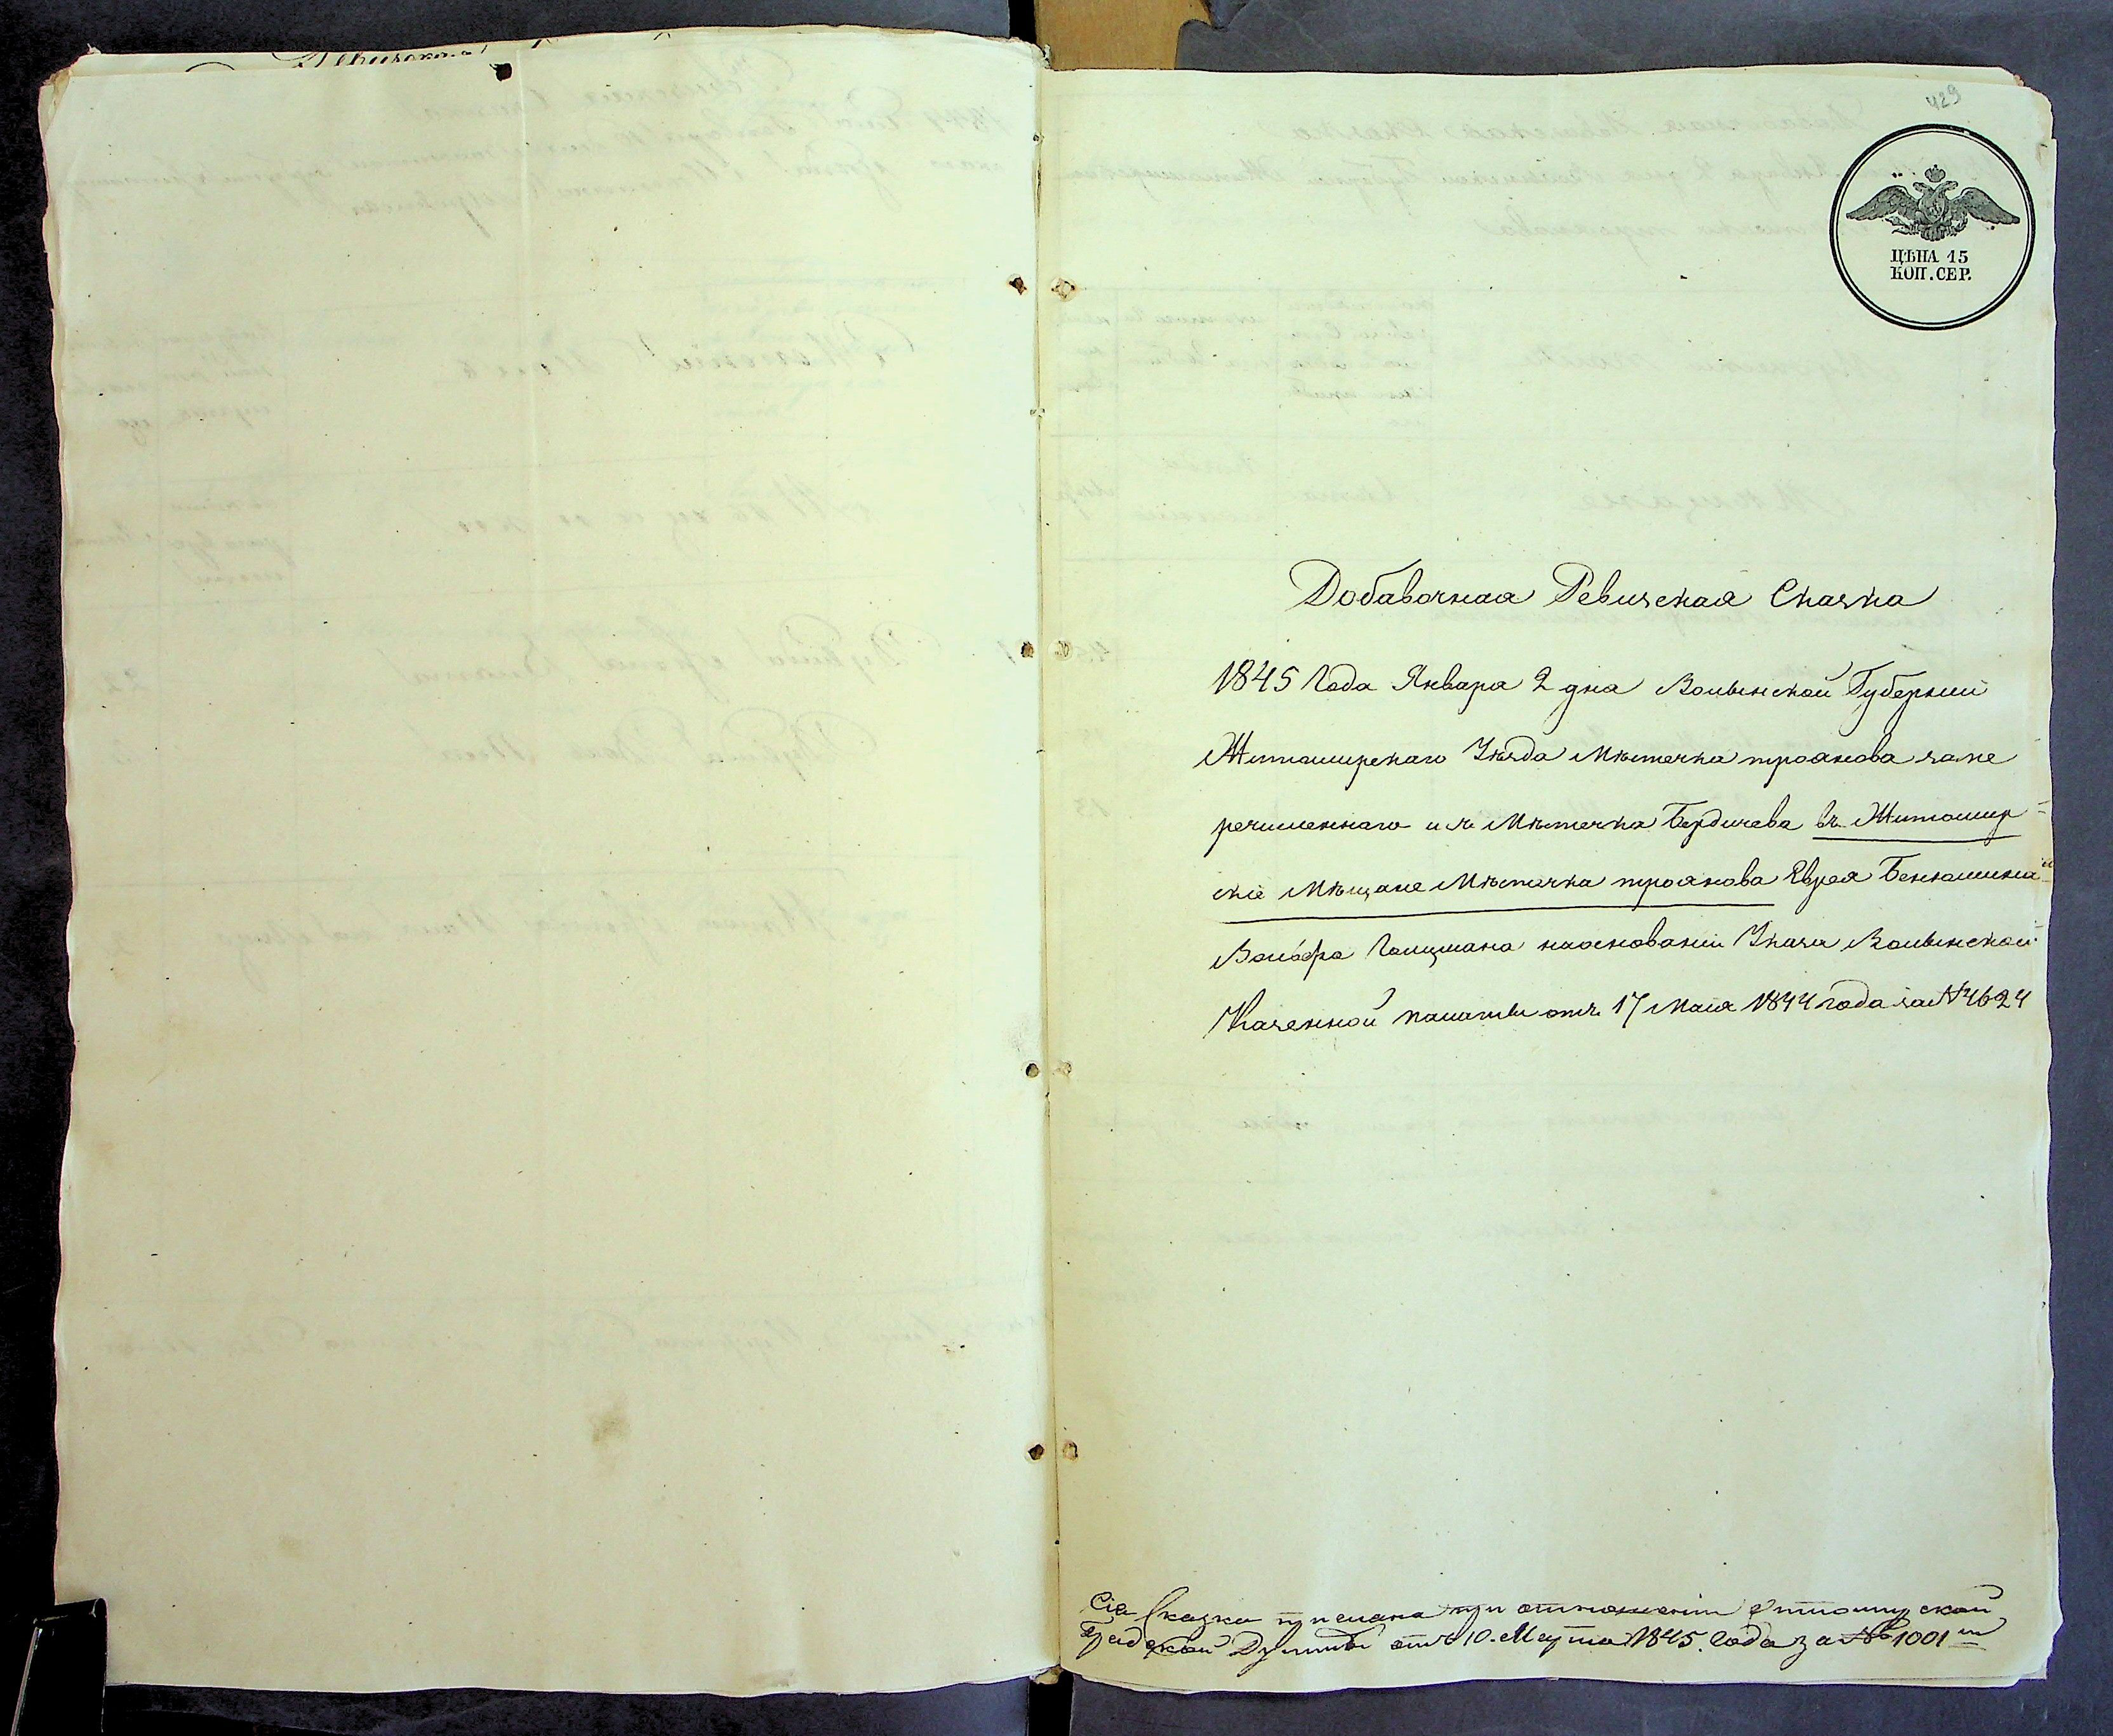 429
ЦѢНА 15
КОП. СЕР.
Добавочная Ревизская Сказка
1845 Года Января 2 дня Волынской Губернии
Житомирскаго Уѣзда Мѣстечка троянова запе
речисленнаго изъ Мѣстечка Бердичева въ Житомир-
скіе Мѣщане Мѣстечка троянова Еврея Беньямина
Вольфа Гольцмана наосновании Указа Волынской
Казенной палаты отъ 17 Мая 1844 года за №4624
Сія Сказка прислана при отношеніи Житомирской
Градской Думы отъ 10. Марта 1845. Года за № 1001